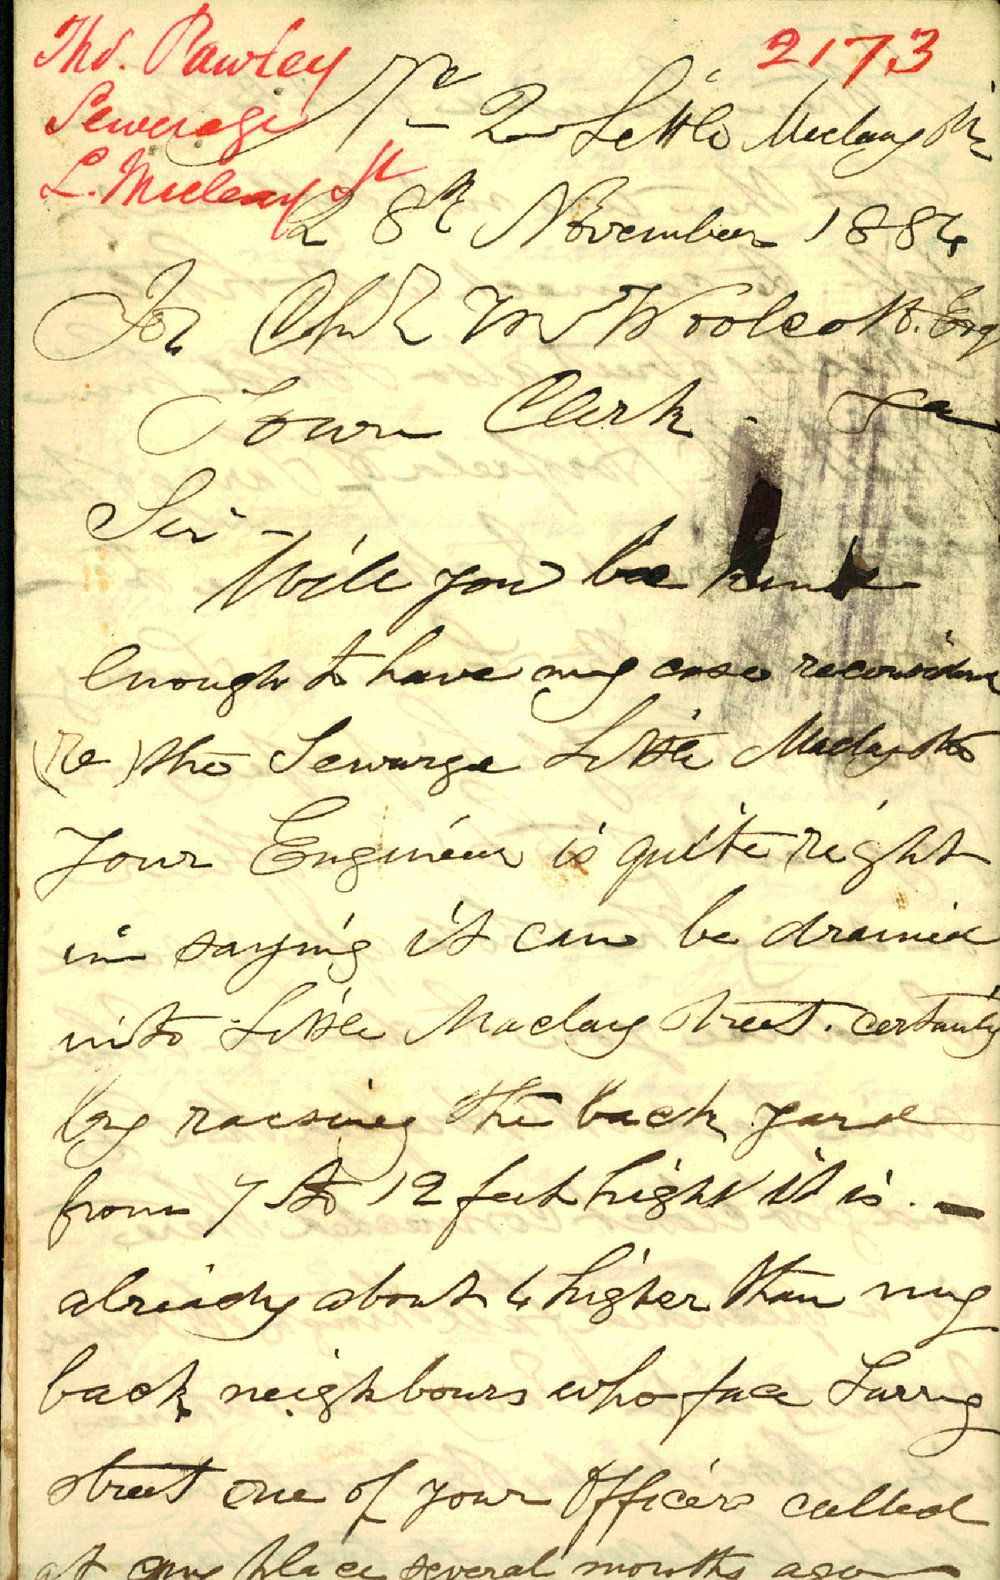 Thos. Pawley
Sewerage
L. Mcleay St
2173
No 2 Little Mcclay St
28th November 1884
For Chs H Woolcott. Esq
Town Clerk.
Sir -
Will you be kind
Enough to have my case reconsidere
(re) the Sewarge Little Maclay St
Your Engineer is quite right
in saying it can be drained
into Little Maclay Street. certainly
by raesing the back yard
from 7 to 12 feet hight it is. -
already about 4 higher than my
back neighbours who face Surry
street one of your Officers called
at my place several months ago